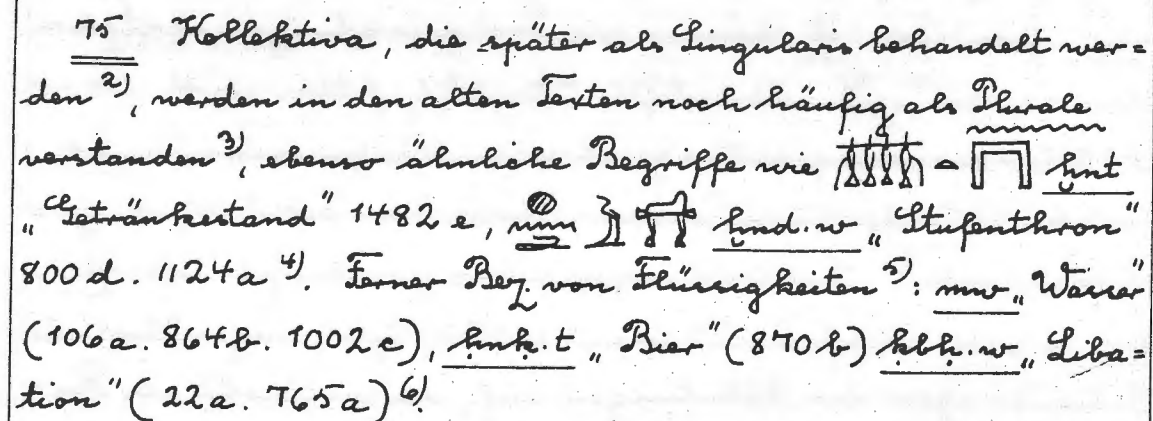 75 Kollektiva, die später als Singularis behandelt wer=
den 2), werden in den alten Texten noch häufig als Plurale
verstanden 3), ebenso ähnliche Begriffe wie 𓏃𓏏𓉐 ḫnt
„Getränkestand" 1482 e, ḫnd.w „Stufenthron"
800 d. 1124a 4). Ferner Bez. von Flüssigkeiten 5): mw „Wasser"
(106a. 864b. 1002c), ḥnḳ.t „Bier" (870b) ḳbḥ.w „Liba=
tion" (22a. 765a) 6).